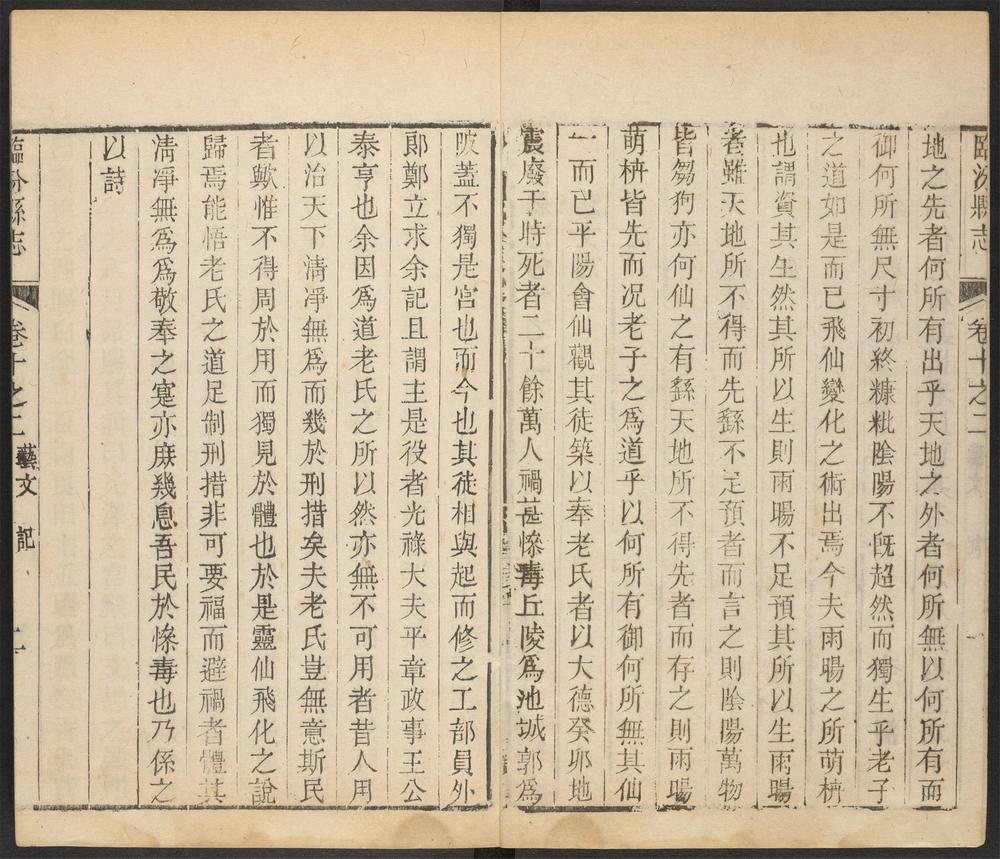 臨汾縣志 卷十之二 一
地之先者何所有出乎天地之外者何所無以何所有而
御何所無尺寸初終糠粃陰陽不旣超然而獨生乎老子
之道如是而已飛仙變化之術出焉今夫雨暘之所萌枿
也謂資其生然其所以生則雨暘不足預其所以生雨暘
者雖天地所不得而先繇不足預者而言之則陰陽萬物
皆芻狗亦何仙之有繇天地所不得先者而存之則雨暘
萌枿皆先而况老子之爲道乎以何所有御何所無其仙
一而已平陽會仙觀其徒築以奉老氏者以大德癸卯地
震廢于時死者二十餘萬人禍甚慘毒丘陵爲池城郭爲
陂蓋不獨是宮也而今也其徒相與起而修之工部員外
郞鄭立求余記且謂主是役者光祿大夫平章政事王公
泰亨也余因爲道老氏之所以然亦無不可用者昔人用
以治天下淸凈無爲而幾於刑措矣夫老氏豈無意斯民
者歟惟不得周於用而獨見於體也於是靈仙飛化之說
歸焉能悟老氏之道足制刑措非可要福而避禍者體其
淸凈無爲爲敬奉之寔亦庶幾息吾民於慘毒也乃係之
以詩
臨汾縣志 卷十之二 藝文 記